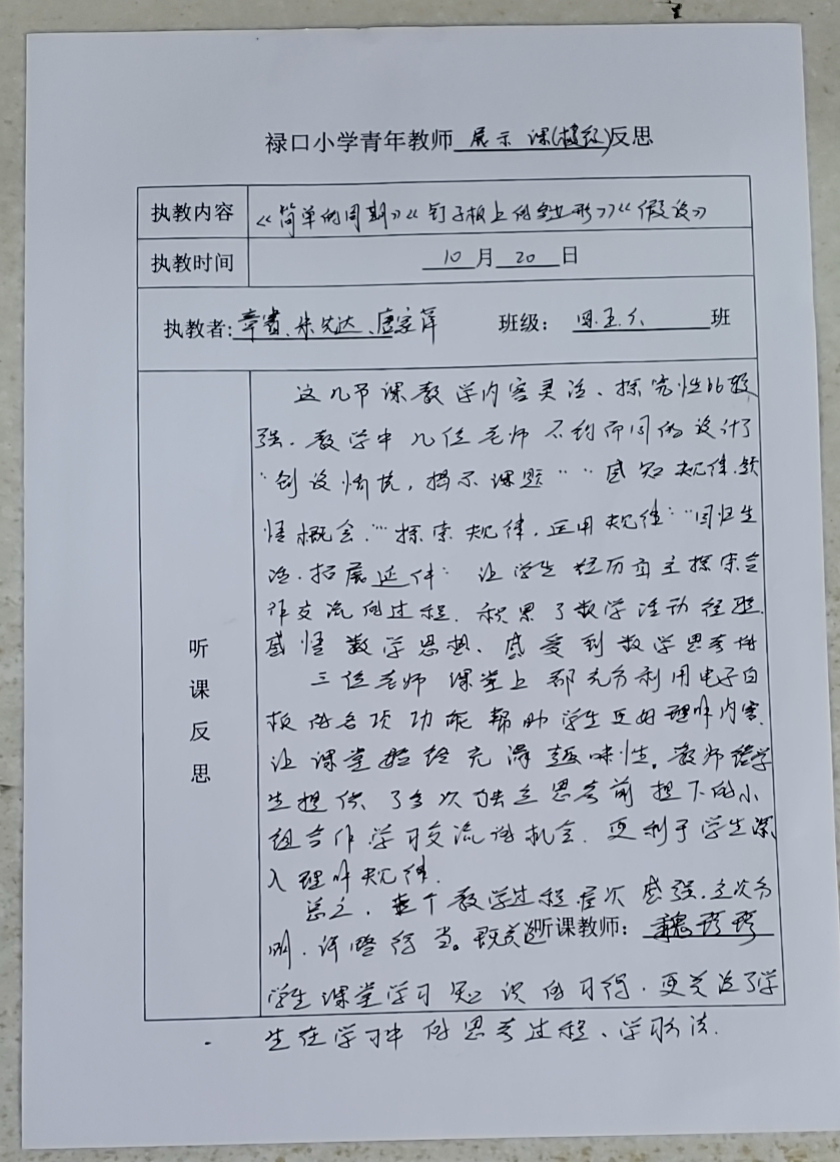 禄口小学青年教师 展示 课(校级)反思
执教内容 《简单的周期》《钉子板上的多边形》《假设》
执教时间 10月20日
执教者: 章 朱 达、唐 萍 班级: 四.五.六 班
这几节课教学内容灵活、探究性比较
强.教学中几位老师不约而同的设计了
"创设情境,揭示课题""感知规律.感
悟概念.""探索规律,运用规律""回归生
活.拓展延伸"让学生经历自主探索合
作交流的过程.积累了数学活动经验.
感悟数学思想、感受到数学思考
三位老师课堂上都充分利用电子白
板的各项功能帮助学生更好理解内容.
让课堂始终充满趣味性。教师给学
生提供了多次独立思考前提下的小
组合作学习交流的机会.更利于学生深
入理解规律.
总之,整个教学过程层次感强.主次分
明.详略得当。既关注
听课教师: 魏珍珍
学生课堂学习知识的习得.更关注了学
生在学习中的思考过程、学习方法.
听课反思